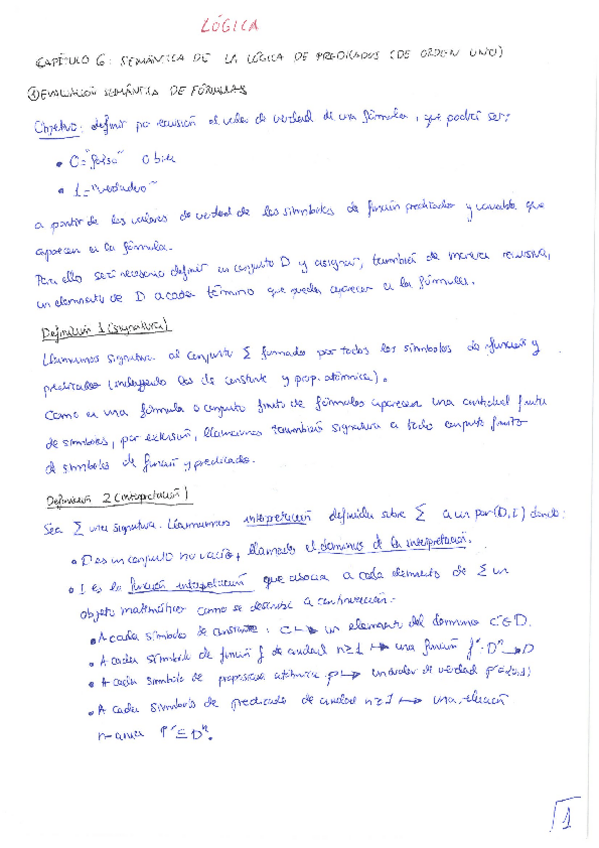 LÓGICA
CAPÍTULO 6: SEMÁNTICA DE LA LÓGICA DE PREDICADOS (DE ORDEN UNO)
① EVALUACIÓN SEMÁNTICA DE FÓRMULAS
Objetivo: definir por recursión el valor de verdad de una fórmula, que podrá ser:
• 0="falso" o bien
• 1="verdadero"
a partir de los valores de verdad de los símbolos de función predicado y variable que
aparecen en la fórmula.
Para ello será necesario definir un conjunto D y asignar, también de manera recursiva,
un elemento de D a cada término que pueda aparecer en la fórmula.
Definición 1 (signatura)
Llamamos signatura al conjunto Σ formado por todos los símbolos de función y
predicado (incluyendo los de constante y prop. atómica).
Como en una fórmula o conjunto finito de fórmulas aparecen una cantidad finita
de símbolos, por extensión, llamaremos también signatura a todo conjunto finito
de símbolos de función y predicado.
Definición 2 (interpretación)
Sea Σ una signatura. Llamamos interpretación definida sobre Σ a un par (D, I) donde:
• D es un conjunto no vacío, llamado el dominio de la interpretación.
• I es la función interpretación que asocia a cada elemento de Σ un
objeto matemático como se describe a continuación:
• A cada símbolo de constante: c ↦ un elemento del dominio c'∈D.
• A cada símbolo de función f de aridad n≥1 ↦ una función f': Dⁿ→D
• A cada símbolo de proposición atómica p ↦ un valor de verdad p'∈{0,1}
• A cada símbolo de predicado de aridad n≥1 ↦ una relación
n-aria P'⊆Dⁿ.
1